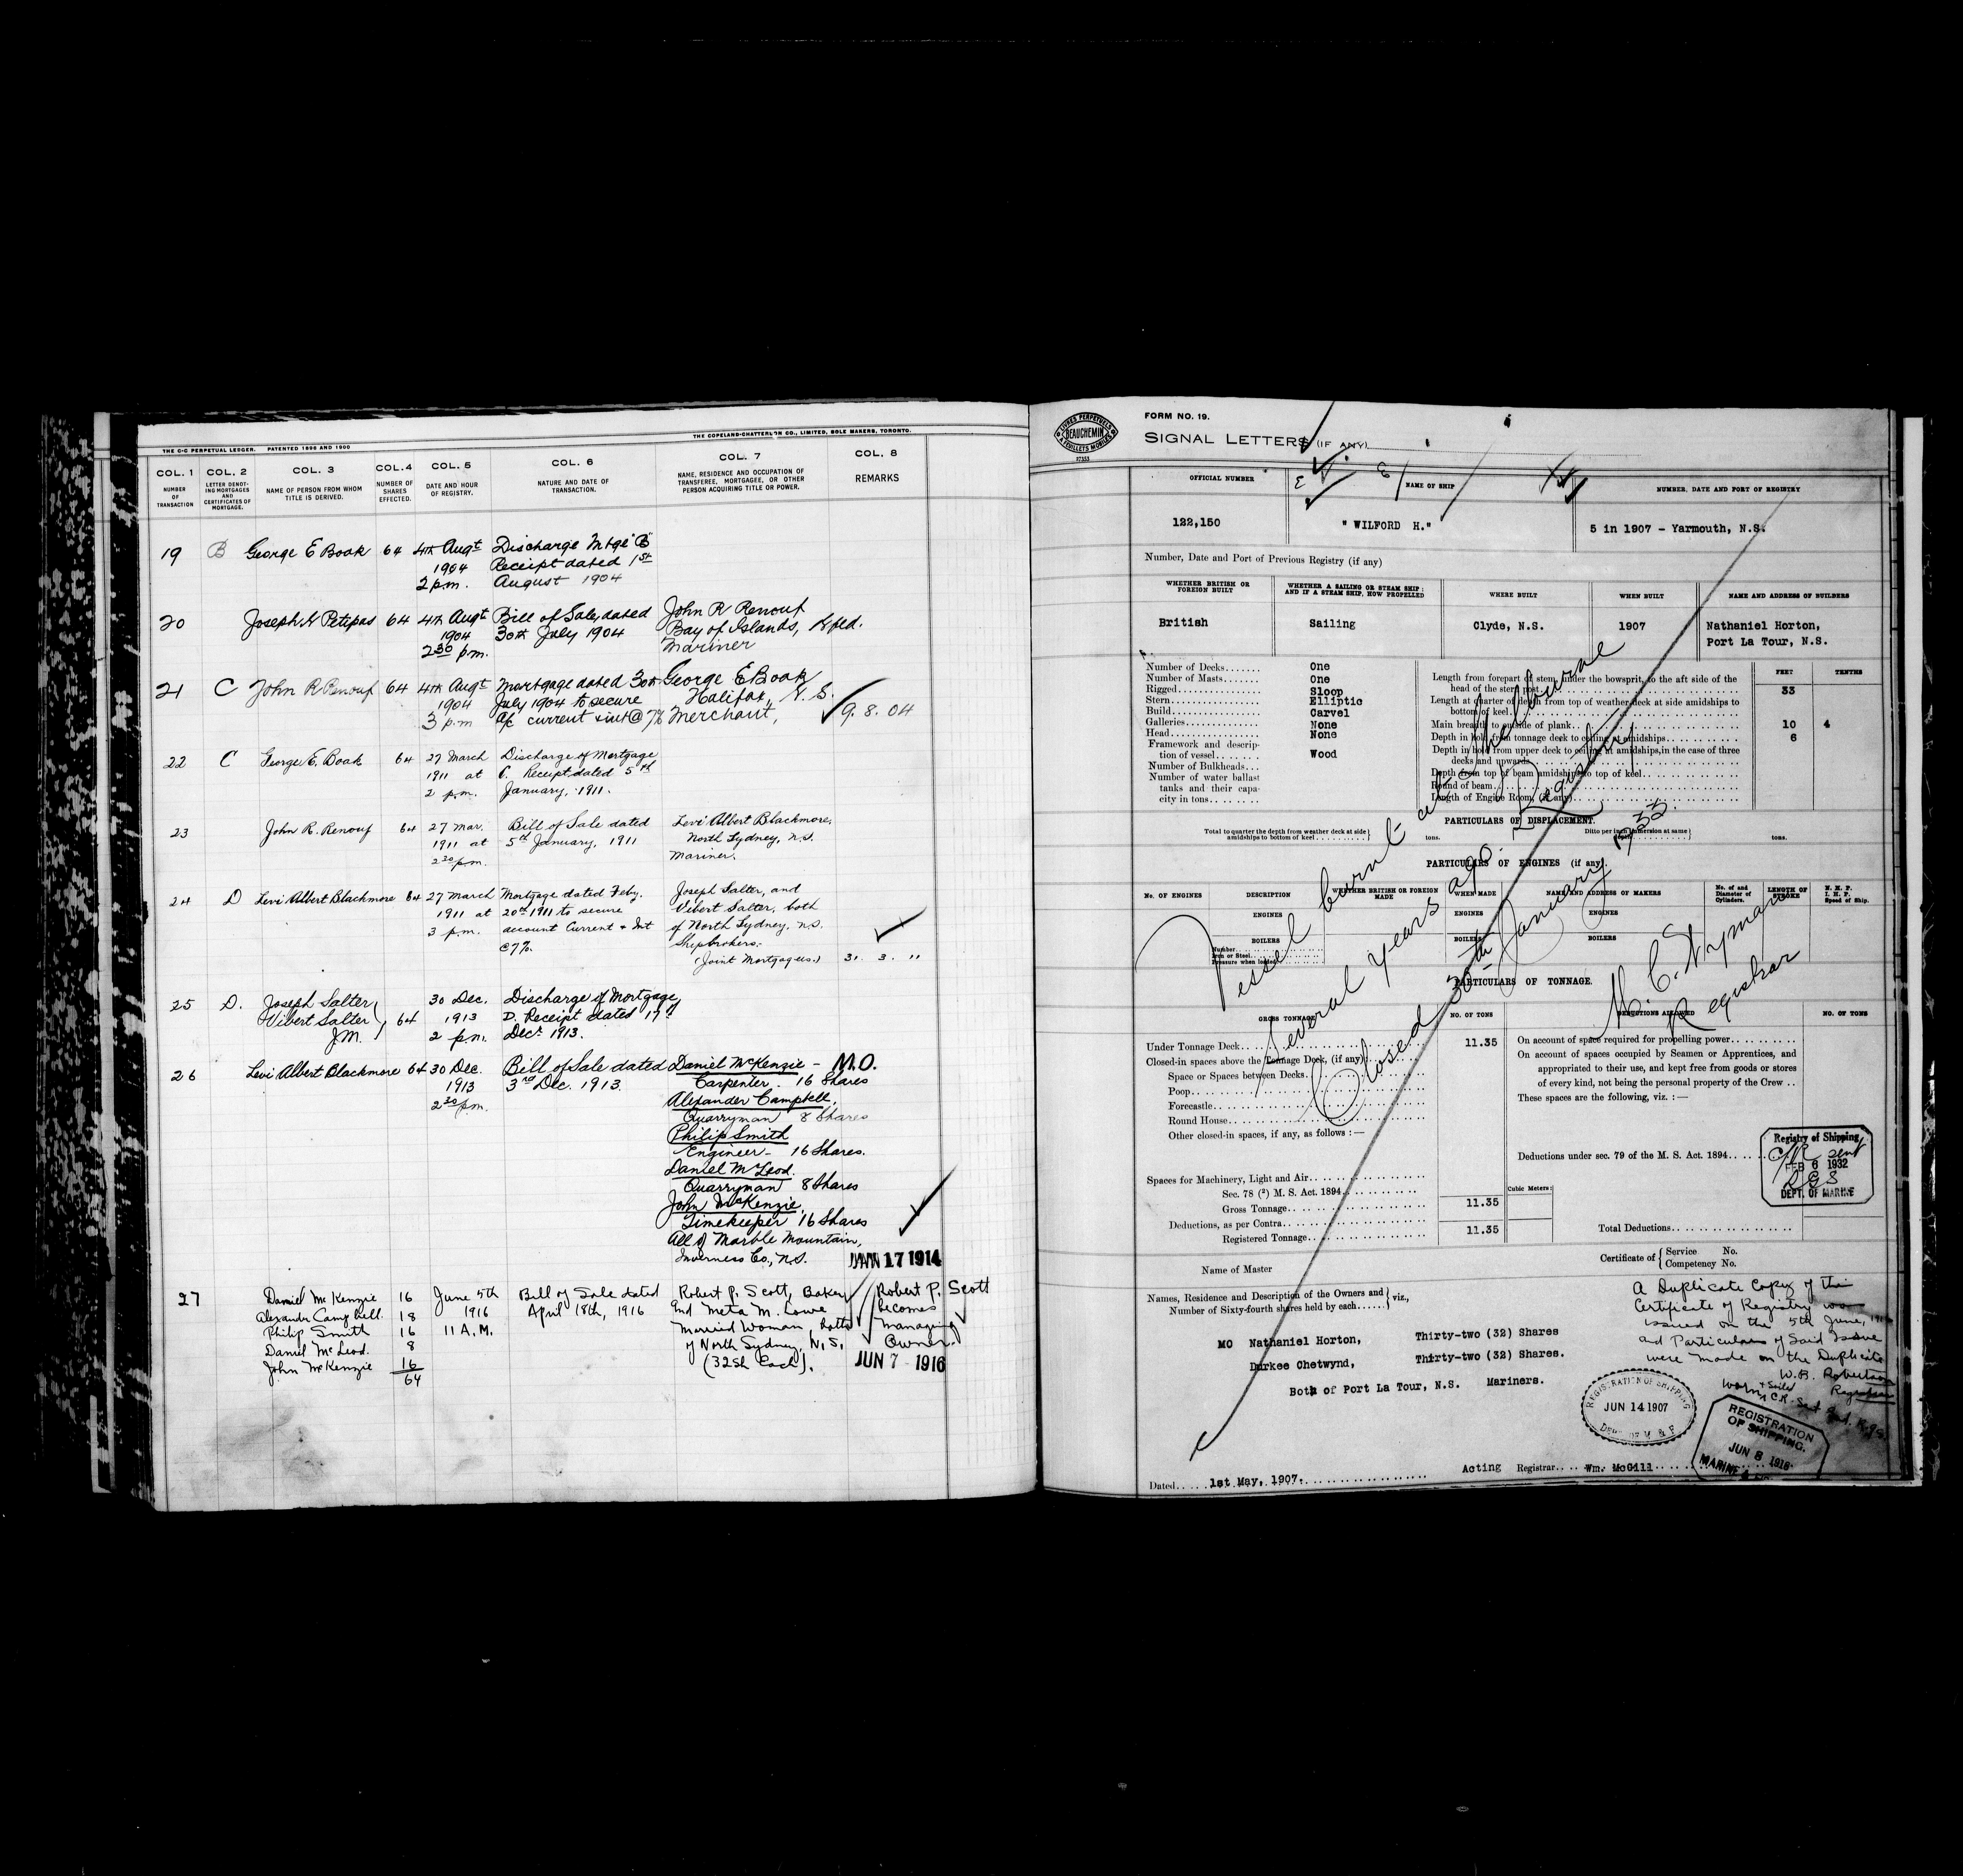 THE C-C PERPETUAL LEDGER. PATENTED 1898 AND 1900
THE COPELAND-CHATTERSON CO., LIMITED, SOLE MAKERS, TORONTO.
COL. 1 COL. 2 COL. 3 COL. 4 COL. 5 COL. 6 COL. 7 COL. 8
NUMBER OF TRANSACTION
LETTER DENOTING MORTGAGES AND CERTIFICATES OF MORTGAGE.
NAME OF PERSON FROM WHOM TITLE IS DERIVED.
NUMBER OF SHARES EFFECTED.
DATE AND HOUR OF REGISTRY.
NATURE AND DATE OF TRANSACTION.
NAME, RESIDENCE AND OCCUPATION OF TRANSFEREE, MORTGAGEE, OR OTHER PERSON ACQUIRING TITLE OR POWER.
REMARKS
19 B George E Boak 64 4th Augt Discharge Mtge "B"
1904 Receipt dated 1st
2 p.m. August 1904
20 Joseph H Petipas 64 4th Augt Bill of Sale, dated John R Renouf
1904 30th July 1904 Bay of Islands, Nfld.
2 30 p.m. Mariner
21 C John R Renouf 64 4th Augt Mortgage dated 30th George E Boak
1904 July 1904 to secure Halifax, N.S.
3 p.m a/c current & int @ 7% Merchant, 9. 8. 04
22 C George E. Boak 64 27 March Discharge of Mortgage
1911 at C. Receipt dated 5th
2 p.m. January, 1911.
23 John R. Renouf 64 27 Mar. Bill of Sale dated Levi Albert Blackmore,
1911 at 5th January, 1911 North Sydney, N.S.
2 30 p.m. Mariner.
24 D Levi Albert Blackmore 64 27 March Mortgage dated Feby. Joseph Salter, and
1911 at 20th 1911 to secure Vibert Salter, both
3 p.m. account Current & Int of North Sydney, N.S.
@ 7%. Shipbrokers.
(Joint Mortgagees.) 31. 3. 11
25 D. Joseph Salter 30 Dec. Discharge of Mortgage
Vibert Salter 64 1913 D. Receipt dated 17th
J.M. 2 p.m. Decr 1913.
26 Levi Albert Blackmore 64 30 Dec. Bill of Sale dated Daniel McKenzie - M.O.
1913 3rd Dec. 1913. Carpenter. 16 Shares
2 30 p.m. Alexander Campbell,
Quarryman 8 Shares
Philip Smith
Engineer - 16 Shares.
Daniel McLeod.
Quarryman 8 Shares
John McKenzie,
Timekeeper 16 Shares
All of Marble Mountain,
Inverness Co., N.S. JAN 17 1914
27 Daniel McKenzie 16 June 5th Bill of Sale dated Robert P. Scott, Baker Robert P. Scott
Alexander Campbell. 18 1916 April 18th, 1916 and Meta M. Lowe becomes
Philip Smith 16 11 A.M. Married Woman, both managing
Daniel McLeod. 8 of North Sydney, N.S, Owner.
John McKenzie 16 (32 Sh Each). JUN 7 1916
64
FORM NO. 19.
LIVRES PERPETUELS
BEAUCHEMIN
A FEUILLETS MOBILES
SIGNAL LETTERS (IF ANY)
OFFICIAL NUMBER NAME OF SHIP NUMBER, DATE AND PORT OF REGISTRY
122,150 "WILFORD H." 5 in 1907 - Yarmouth, N.S.
Number, Date and Port of Previous Registry (if any)
WHETHER BRITISH OR FOREIGN BUILT
WHETHER A SAILING OR STEAM SHIP; AND IF A STEAM SHIP, HOW PROPELLED
WHERE BUILT WHEN BUILT NAME AND ADDRESS OF BUILDERS
British Sailing Clyde, N.S. 1907 Nathaniel Horton,
Port La Tour, N.S.
Number of Decks One
Number of Masts One
Rigged Sloop
Stern Elliptic
Build Carvel
Galleries None
Head None
Framework and description of vessel Wood
Number of Bulkheads
Number of water ballast tanks and their capacity in tons
FEET TENTHS
Length from forepart of stem, under the bowsprit, to the aft side of the head of the stern post 33
Length at quarter of depth from top of weather deck at side amidships to bottom of keel
Main breadth to outside of plank 10 4
Depth in hold from tonnage deck to ceiling at amidships 6
Depth in hold from upper deck to ceiling at amidships, in the case of three decks and upwards
Depth from top of beam amidships to top of keel
Round of beam
Length of Engine Room, (if any)
PARTICULARS OF DISPLACEMENT.
Total to quarter the depth from weather deck at side amidships to bottom of keel tons. Ditto per inch immersion at same depth tons.
PARTICULARS OF ENGINES (if any).
No. OF ENGINES DESCRIPTION WHETHER BRITISH OR FOREIGN MADE WHEN MADE NAME AND ADDRESS OF MAKERS No. of and Diameter of Cylinders. LENGTH OF STROKE N. H. P. I. H. P. Speed of Ship.
ENGINES ENGINES ENGINES
BOILERS BOILERS BOILERS
Number
Iron or Steel
Pressure when loaded
PARTICULARS OF TONNAGE.
GROSS TONNAGE NO. OF TONS DEDUCTIONS ALLOWED NO. OF TONS
Under Tonnage Deck 11.35
Closed-in spaces above the Tonnage Deck, (if any):
Space or Spaces between Decks
Poop
Forecastle
Round House
Other closed-in spaces, if any, as follows : —
Spaces for Machinery, Light and Air
Sec. 78 (2) M. S. Act. 1894
Cubic Meters:
Gross Tonnage 11.35
Deductions, as per Contra
Registered Tonnage 11.35
On account of space required for propelling power
On account of spaces occupied by Seamen or Apprentices, and
appropriated to their use, and kept free from goods or stores
of every kind, not being the personal property of the Crew
These spaces are the following, viz. : —
Deductions under sec. 79 of the M. S. Act. 1894
Total Deductions
Registry of Shipping
C/R sent
FEB 6 1932
DEPT. OF MARINE
Vessel burnt at Shelbourne
several years ago. Registry
Closed 30th January 1932.
N. C. Wyman
Registrar
Name of Master Certificate of Service No.
Competency No.
Names, Residence and Description of the Owners and
Number of Sixty-fourth shares held by each viz.,
MO Nathaniel Horton, Thirty-two (32) Shares
Durkee Chetwynd, Thirty-two (32) Shares.
Both of Port La Tour, N.S. Mariners.
A Duplicate Copy of this
Certificate of Registry was
issued on the 5th June, 1916
and Particulars of Said Issue
were made on the Duplicate
W.B. Robertson
Registrar
REGISTRATION OF SHIPPING
JUN 14 1907
DEPT. OF M. & F
REGISTRATION
OF SHIPPING.
JUN 8 1916
MARINE
Dated 1st May, 1907. Acting Registrar Wm. McGill